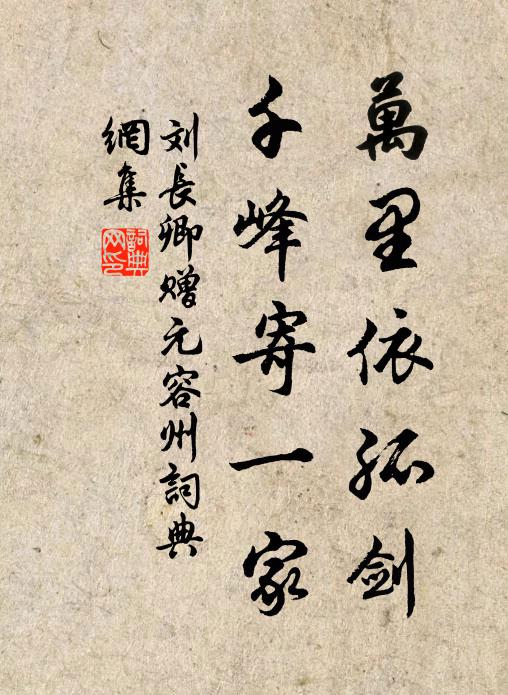 萬里依孤剑
千峰寄一家
刘長卿赠元容州詞典
網集
詞典
网印